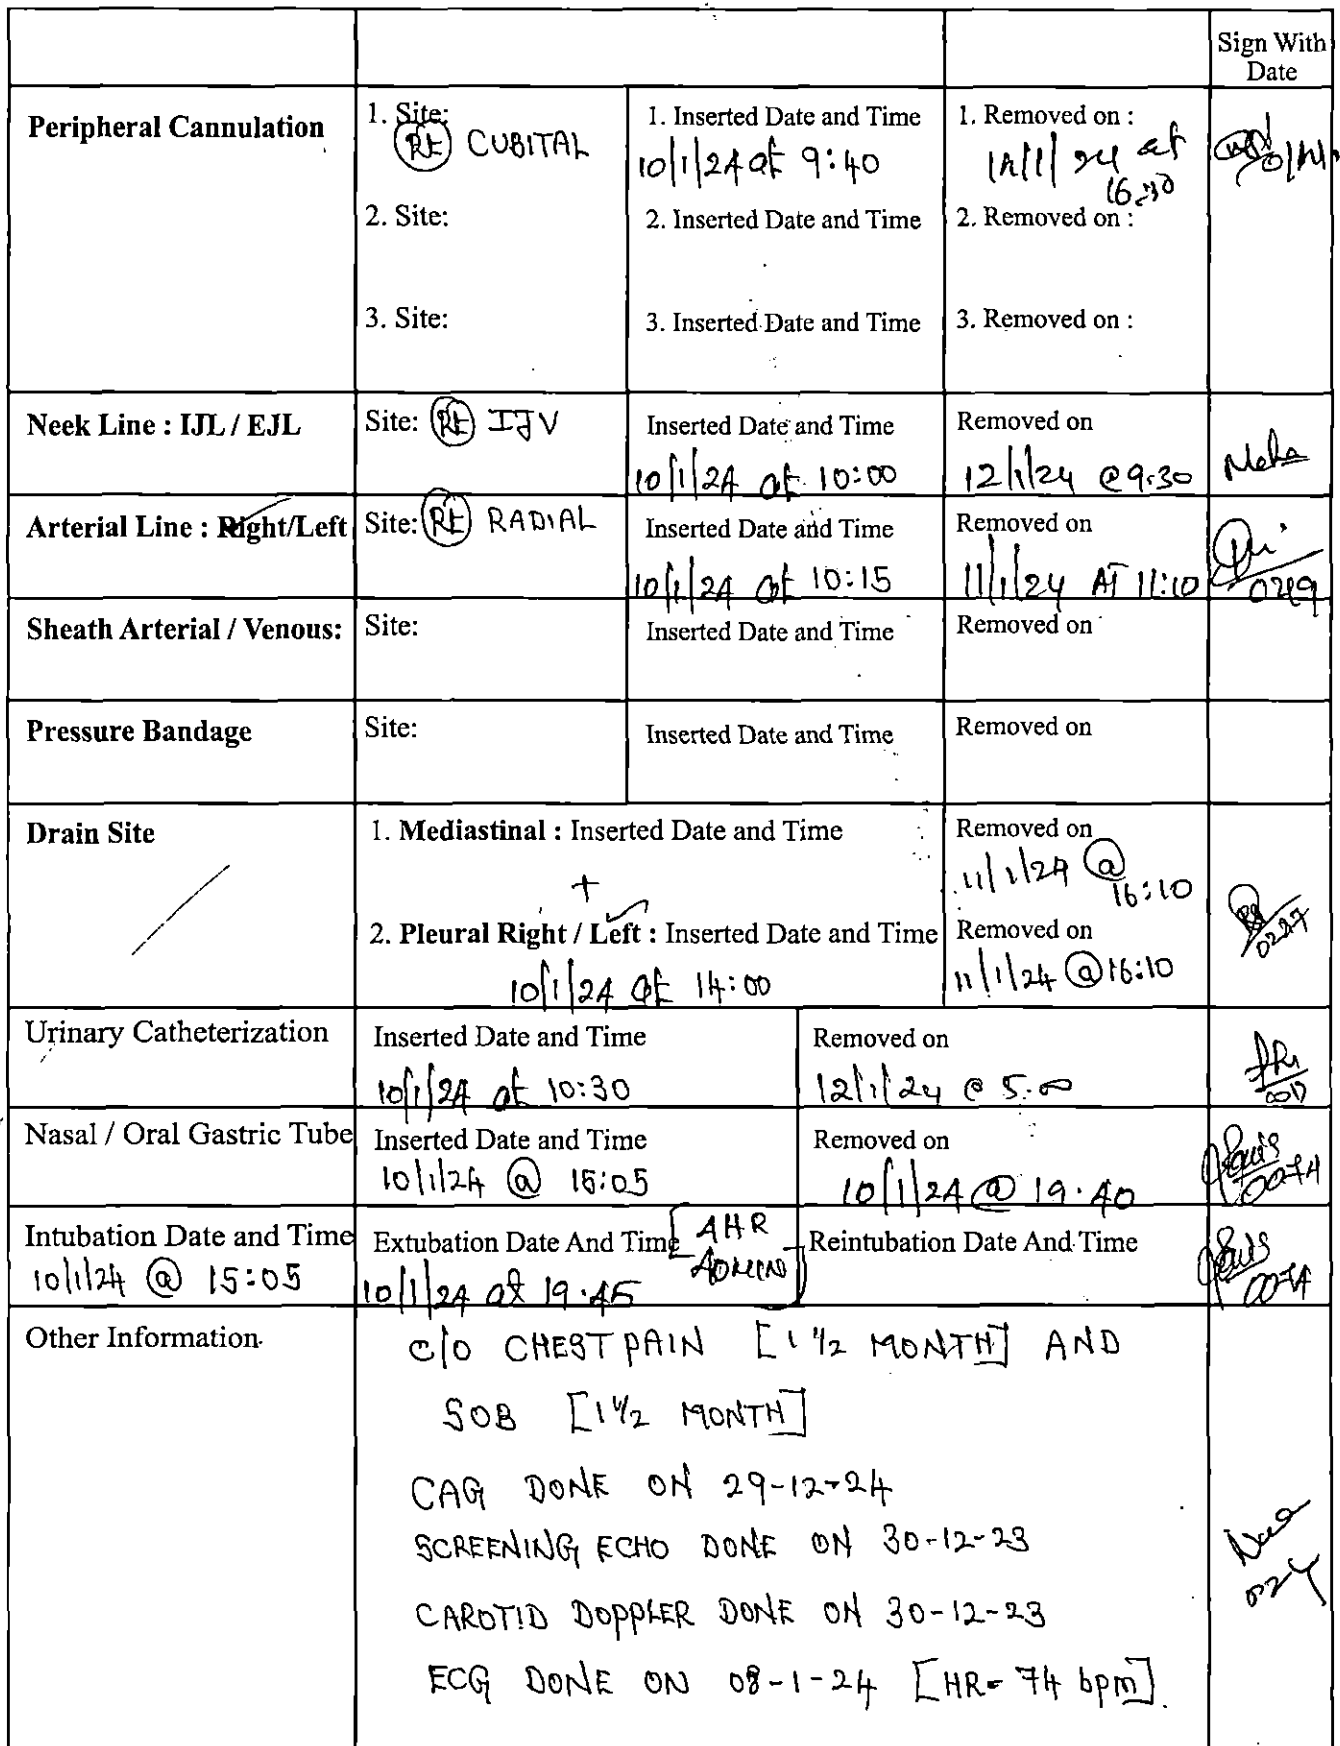 Sign With
Date
Peripheral Cannulation
1. Site:
RE CUBITAL
1. Inserted Date and Time
10/1/24 at 9:40
1. Removed on :
/1/24 at
16:30
2. Site:
2. Inserted Date and Time
2. Removed on :
3. Site:
3. Inserted Date and Time
3. Removed on :
Neek Line : IJL / EJL
Site: RE IJV
Inserted Date and Time
10/1/24 at 10:00
Removed on
12/1/24 @ 9:30
Neha
Arterial Line : Right/Left
Site: RE RADIAL
Inserted Date and Time
10/1/24 at 10:15
Removed on
11/1/24 AT 11:10
Sheath Arterial / Venous:
Site:
Inserted Date and Time
Removed on
Pressure Bandage
Site:
Inserted Date and Time
Removed on
Drain Site
1. Mediastinal : Inserted Date and Time
+
Removed on
11/1/24 @
16:10
2. Pleural Right / Left : Inserted Date and Time
10/1/24 at 14:00
Removed on
11/1/24 @ 16:10
0227
Urinary Catheterization
Inserted Date and Time
10/1/24 at 10:30
Removed on
12/1/24 @ 5:00
Nasal / Oral Gastric Tube
Inserted Date and Time
10/1/24 @ 15:05
Removed on
10/1/24 @ 19.40
0074
Intubation Date and Time
10/1/24 @ 15:05
Extubation Date And Time
10/1/24 at 19.45
[4HR
40MINS]
Reintubation Date And Time
0074
Other Information
c/o CHEST PAIN [1 1/2 MONTH] AND
SOB [1 1/2 MONTH]
CAG DONE ON 29-12-24
SCREENING ECHO DONE ON 30-12-23
CAROTID DOPPLER DONE ON 30-12-23
ECG DONE ON 08-1-24 [HR= 74 bpm].